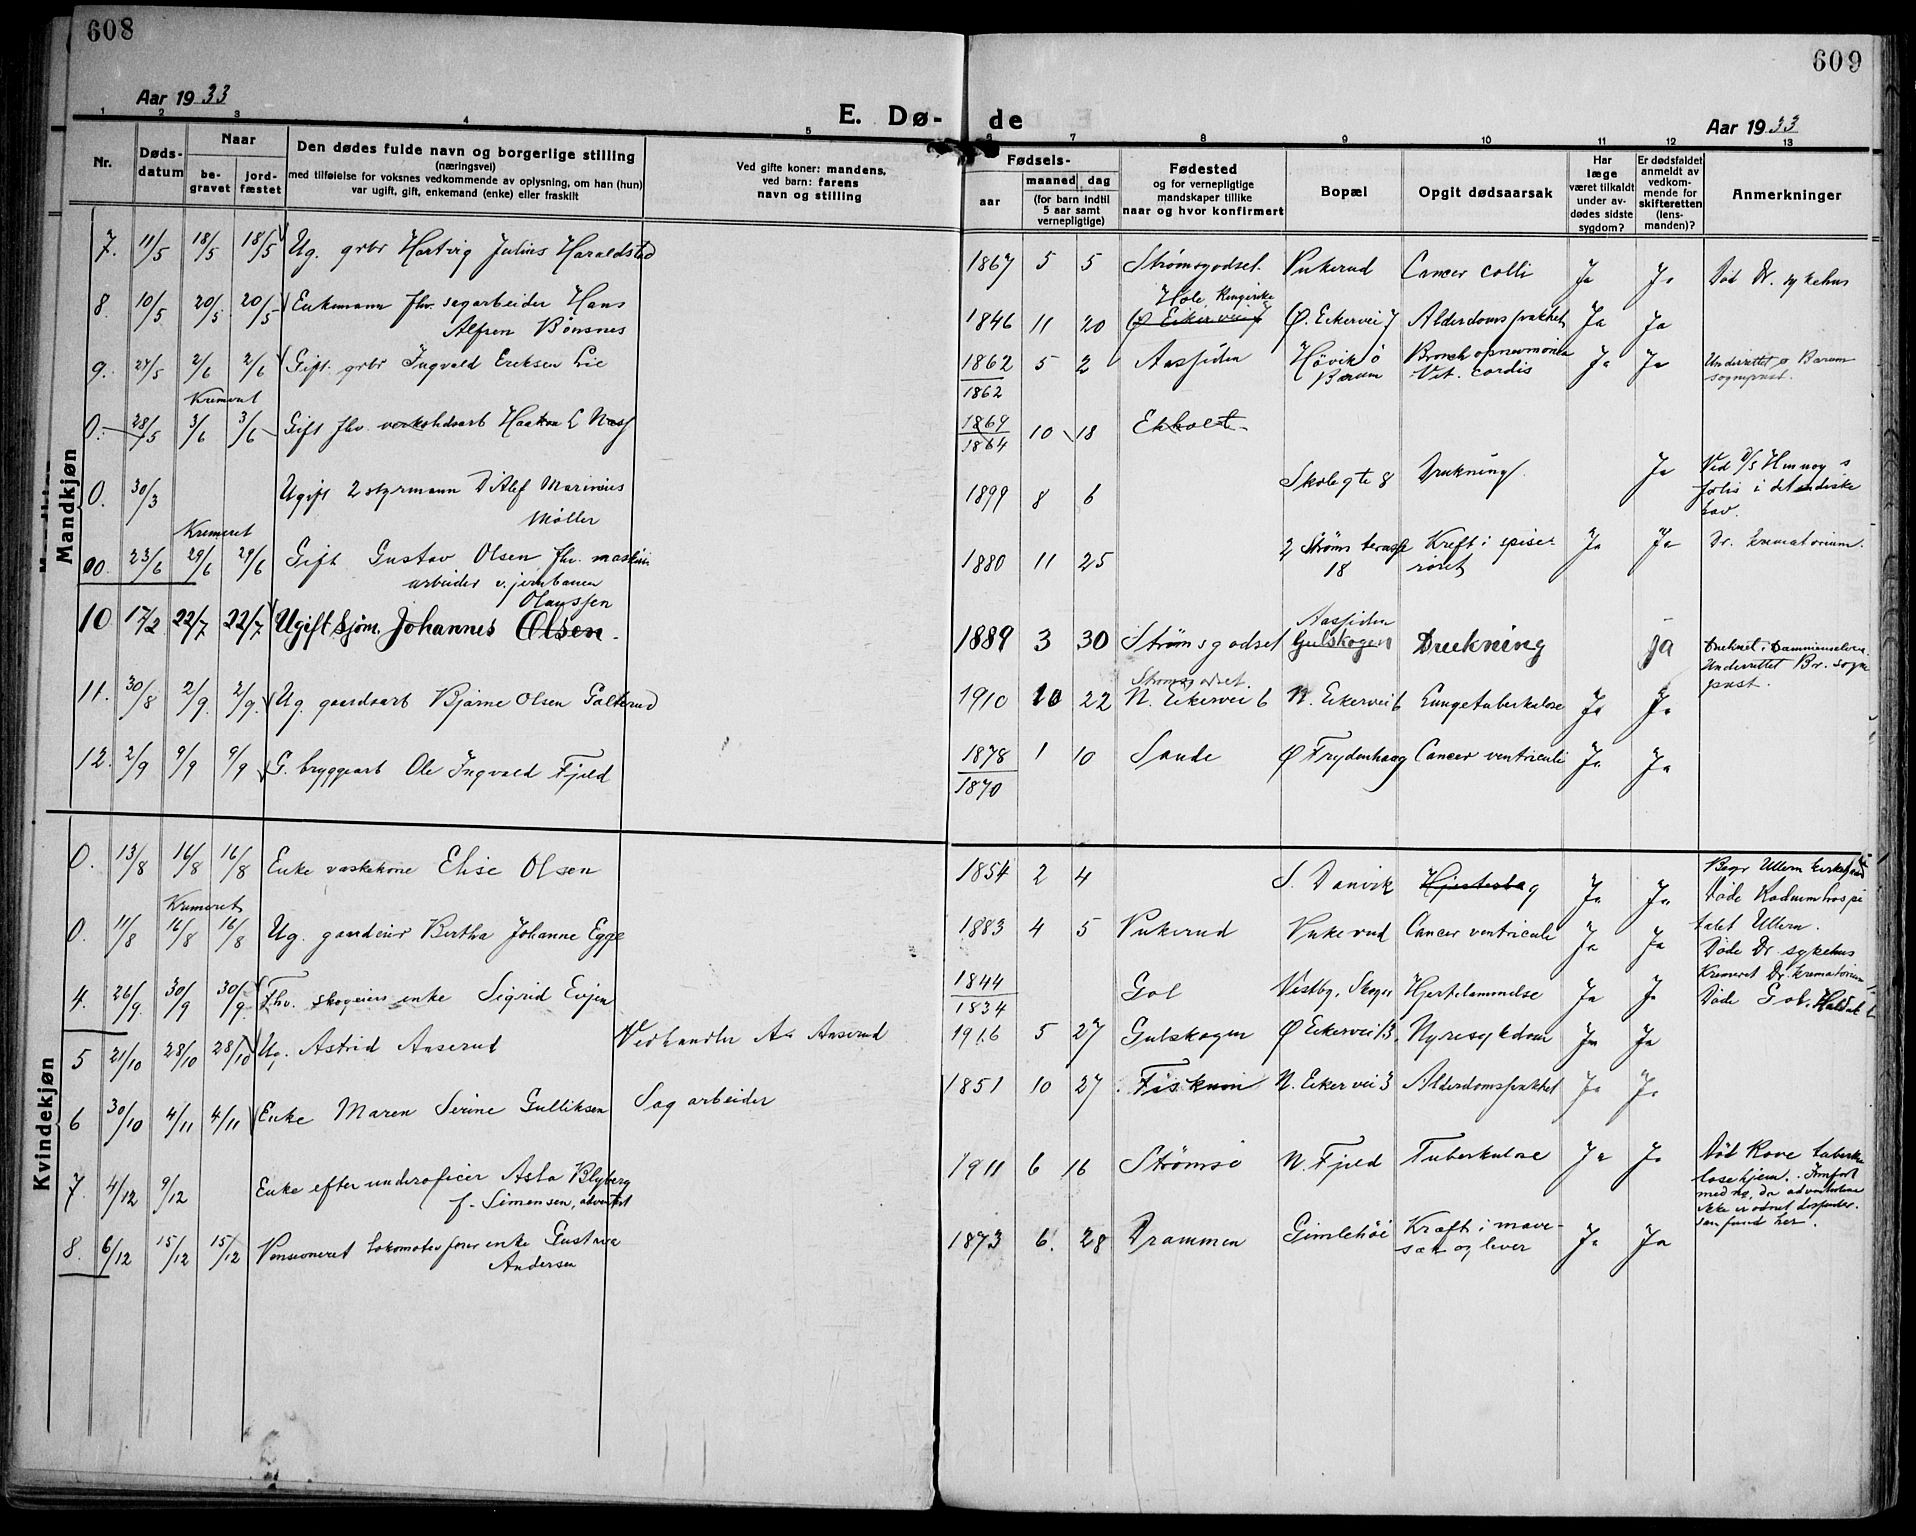 608
Aar 1933
E. Dø-
1 2 3 4 5
Nr.
Døds-
datum
Naar
be-
gravet
jord-
fæstet
Den dødes fulde navn og borgerlige stilling
(næringsvei)
med tilføielse for voksnes vedkommende av oplysning, om han (hun)
var ugift, gift, enkemand (enke) eller fraskilt
Ved gifte koner: mandens,
ved barn: farens
navn og stilling
Mandkjøn
7. 11/5 18/5 18/5 Ug. grbr Hartvig Julius Haraldstad
8. 10/5 20/5 20/5 Enkemann fhv. sagarbeider Hans
Alfren Bönsnes
9. 27/5 2/6 2/6 Gift. grbr Ingvald Eriksen Lie
Kremert
0. 28/5 3/6 3/6 Gift fhv. verkstedsarb Haakon L Næss
0. 30/3 Ugift 2 styrmann Ditlef Marinius
Møller
Kremeret
00 23/6 29/6 29/6 Gift Gustav Olsen fhv. maskin
arbeider v. jernbanen
Olaussen
10 17/2 22/7 22/7 Ugift sjøm. Johannes Olsen.
11. 30/8 2/9. 2/9. Ug. gaardsarb Bjarne Olsen Galterud
12. 2/9 9/9 9/9 G. bryggearb Ole Ingvald Fjeld
Kvindekjøn
0. 13/8 16/8 16/8 Enke vaskekone Elise Olsen
Kremeret
0. 11/8 16/8 16/8 Ug. gaardeier Bertha Johanne Egge
4. 26/9. 30/9 30/9 Fhv. skogeiers enke Sigrid Evjen
5 21/10 28/10 28/10 Ug. Astrid Aaserud Vedhandler A. Aaserud
6 30/10 4/11 4/11 Enke Maren Serine Gulliksen Sagarbeider
7. 4/12 9/12 Enke efter underoficer Asta Blyberg
f. Simensen, adventist
8. 6/12 15/12 15/12 Pensioneret lokomotivförer enke Gustava
Andersen
609
de
Aar 1933
6 7 8 9 10 11 12 13
Fødsels-
aar
maaned dag
(for barn indtil
5 aar samt
vernepligtige)
Fødested
og for vernepligtige
mandskaper tillike
naar og hvor konfirmert
Bopæl
Opgit dødsaarsak
Har
læge
været tilkaldt
under av-
dødes sidste
sygdom?
Er dødsfaldet
anmeldt av
vedkom-
mende for
skifteretten
(lens-
manden)?
Anmerkninger
1867 5 5 Strømsgodset. Pukerud Cancer colli Ja Ja Död Dr. sykehus
Hole, Ringerike
1846 11 20 Ø Eikervei 7 Ø. Eikervei 7 Alderdomssvakhet Ja Ja
1862 5 2 Aassiden Hövik ö Bronchopneumonia Ja Ja Underrettet Bærum
1862 Bærum Vit. cordis sogneprest.
1869
1864 10 18 Ekholt
1899 8 6 Skolegte 8 Drukning Ja Ved D/S
i det indiske
hav.
1880 11 25 2 Strøms terasse Kreft i spise Ja Ja Dr. krematorium.
18 röret
Aassiden
1889 3 30 Strømsgodset Gulskogen Drukning ja Druknet i Drammenselven.
Underrettet Br. sogne
prest.
Strømsgodset.
1910 10 22 N. Eikervei 6 N. Eikervei 6 Lungetuberkulose Ja Ja
1878 1 10 Sande Ø Frydenhaug Cancer ventriculi Ja Ja
1870
1854 2 4 S. Danvik Hjerteslag Ja Ja Begr Ullern kirkegaard
Döde Radiumhospi
talet Ullern.
1883 4 5 Pukerud Pukerud Cancer ventriculi Ja Ja Döde Dr. sykehus
Kremeret Dr. krematorium
1844
1834 Gol Vestby, Skoger Hjertelammelse Ja Ja Döde Gol,
1916 5 27 Gulskogen Ø Eikervei 13. Nyresykdom Ja Ja
1851 10 27 Fiskum N. Eikervei 3 Alderdomssvakhet Ja Ja
1911 6 16 Strømsö N. Fjeld Tuberkulose Ja Ja Död Kove tuberku
losehjem.
her.
1873 6. 28 Drammen Gimlehöi Kræft i mave- Ja Ja
sæk og lever